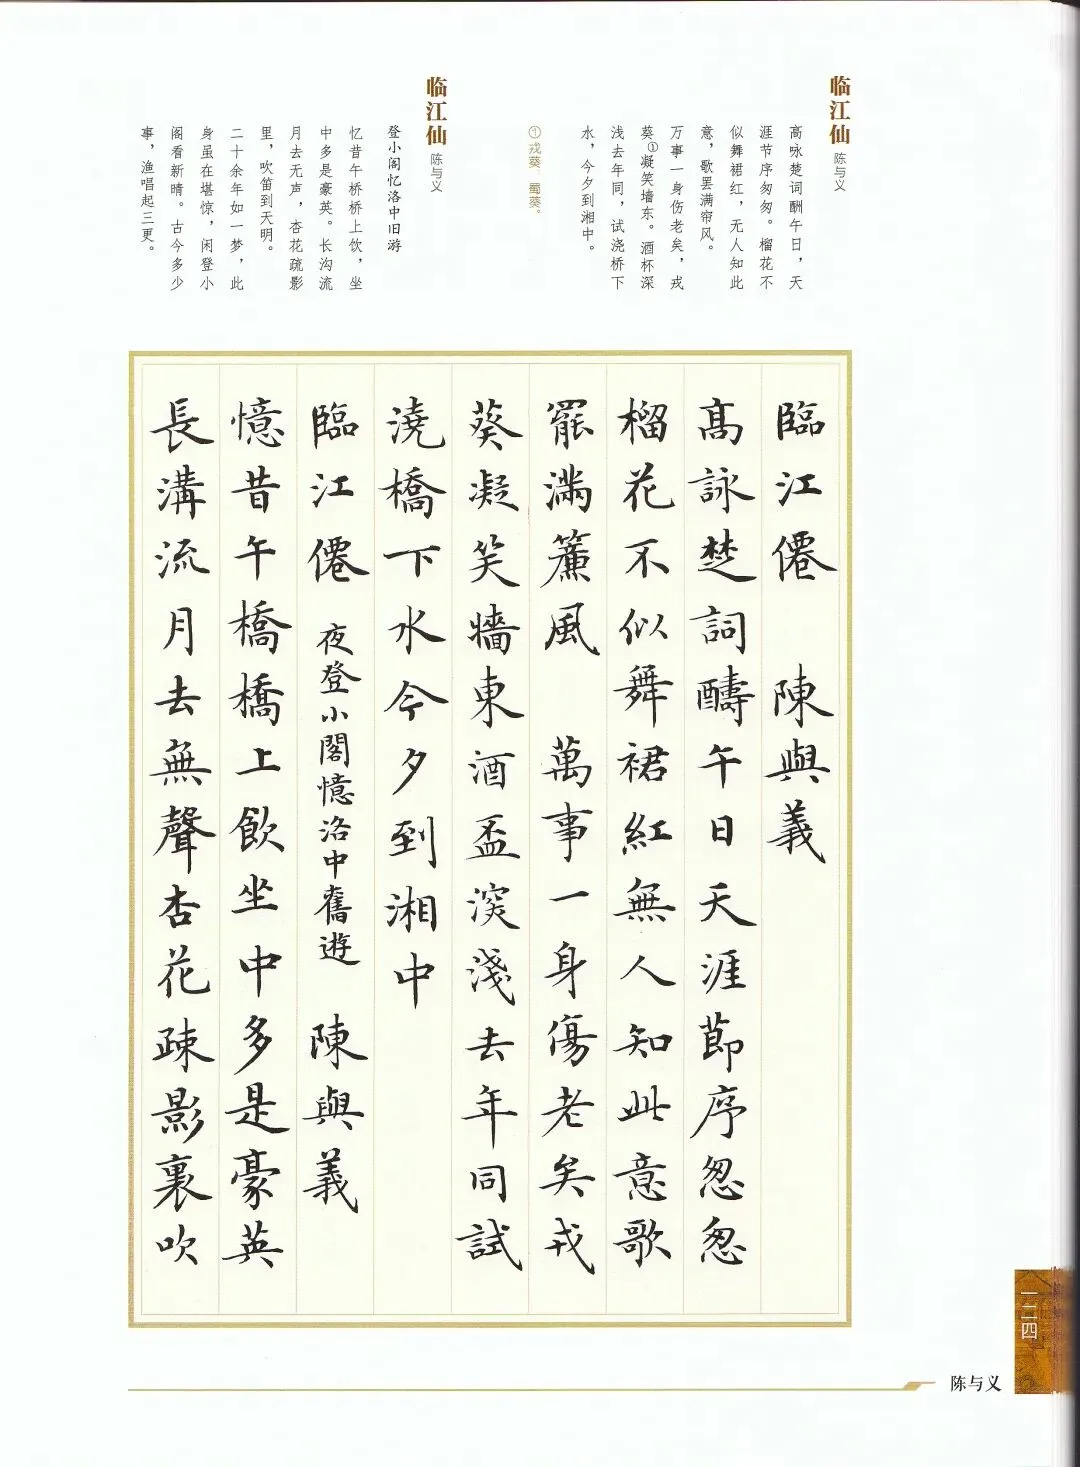 临江仙 陈与义
高咏楚词酬午日，天
涯节序匆匆。榴花不
似舞裙红，无人知此
意，歌罢满帘风。
万事一身伤老矣，戎
葵①凝笑墙东。酒杯深
浅去年同，试浇桥下
水，今夕到湘中。
①戎葵：蜀葵。
临江仙 陈与义
登小阁忆洛中旧游
忆昔午桥桥上饮，坐
中多是豪英。长沟流
月去无声，杏花疏影
里，吹笛到天明。
二十余年如一梦，此
身虽在堪惊，闲登小
阁看新晴。古今多少
事，渔唱起三更。
臨江僊 陳與義
高詠楚詞醻午日天涯節序怱怱
榴花不似舞裙紅無人知此意歌
罷滿簾風 萬事一身傷老矣戎
葵凝笑牆東酒盃深淺去年同試
澆橋下水今夕到湘中
臨江僊 夜登小閣憶洛中舊遊 陳與義
憶昔午橋橋上飲坐中多是豪英
長溝流月去無聲杏花疎影裏吹
一二四
陈与义